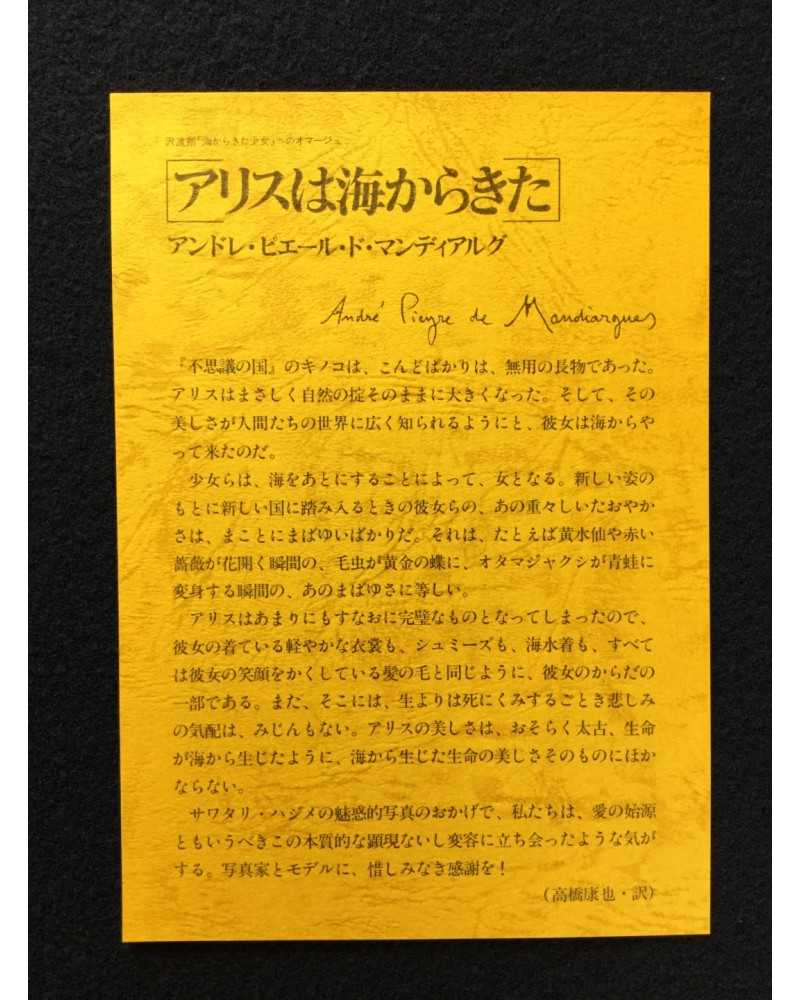 沢渡朔「海からきた少女」へのオマージュ
アリスは海からきた
アンドレ・ピエール・ド・マンディアルグ
André Pieyre de Mandiargues
『不思議の国』のキノコは、こんどばかりは、無用の長物であった。
アリスはまさしく自然の掟そのままに大きくなった。そして、その
美しさが人間たちの世界に広く知られるようにと、彼女は海からや
って来たのだ。
少女らは、海をあとにすることによって、女となる。新しい姿の
もとに新しい国に踏み入るときの彼女らの、あの重々しいたおやか
さは、まことにまばゆいばかりだ。それは、たとえば黄水仙や赤い
薔薇が花開く瞬間の、毛虫が黄金の蝶に、オタマジャクシが青蛙に
変身する瞬間の、あのまばゆさに等しい。
アリスはあまりにもすなおに完璧なものとなってしまったので、
彼女の着ている軽やかな衣裳も、シュミーズも、海水着も、すべて
は彼女の笑顔をかくしている髪の毛と同じように、彼女のからだの
一部である。また、そこには、生よりは死にくみするごとき悲しみ
の気配は、みじんもない。アリスの美しさは、おそらく太古、生命
が海から生じたように、海から生じた生命の美しさそのものにほか
ならない。
サワタリ・ハジメの魅惑的写真のおかげで、私たちは、愛の始源
ともいうべきこの本質的な顕現ないし変容に立ち会ったような気が
する。写真家とモデルに、惜しみなき感謝を!
(高橋康也・訳)